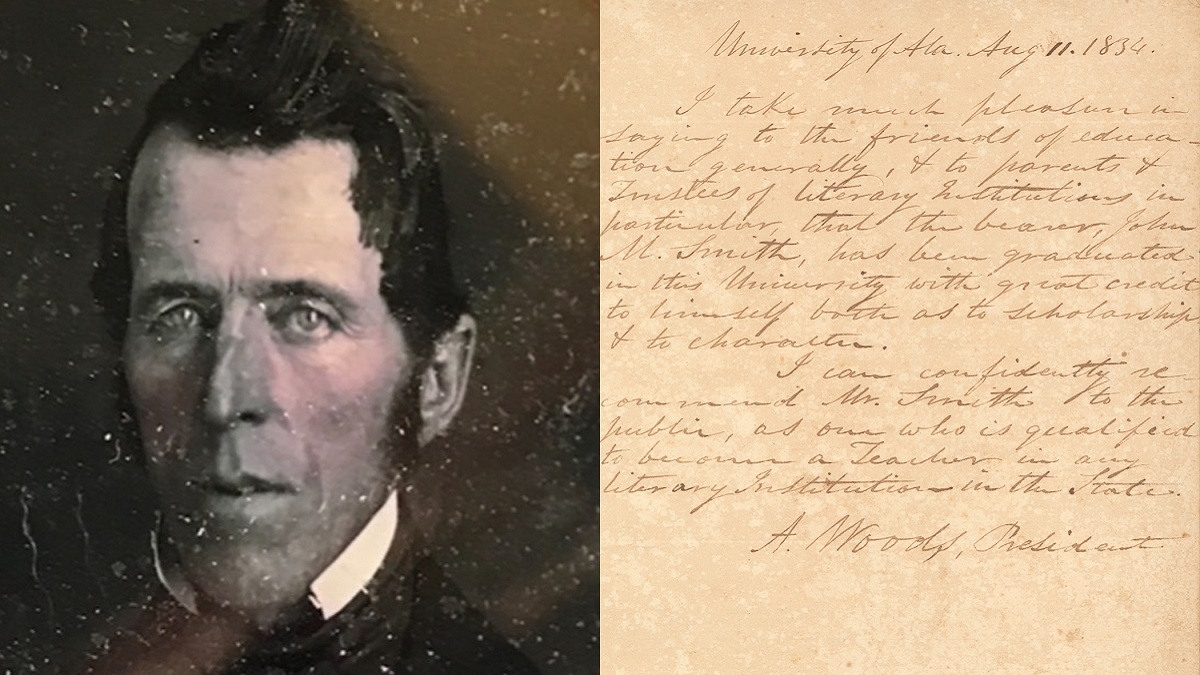 University of Ala. Aug 11. 1834.
I take much pleasure in
saying to the friends of educa-
tion generally, & to parents &
Trustees of literary Institutions in
particular, that the bearer, John
M. Smith, has been graduated
in this University with great credit
to himself both as to scholarship
& to character.
I can confidently re-
commend Mr. Smith to the
public, as one who is qualified
to become a Teacher in any
literary Institution in the State.
A. Woods, President